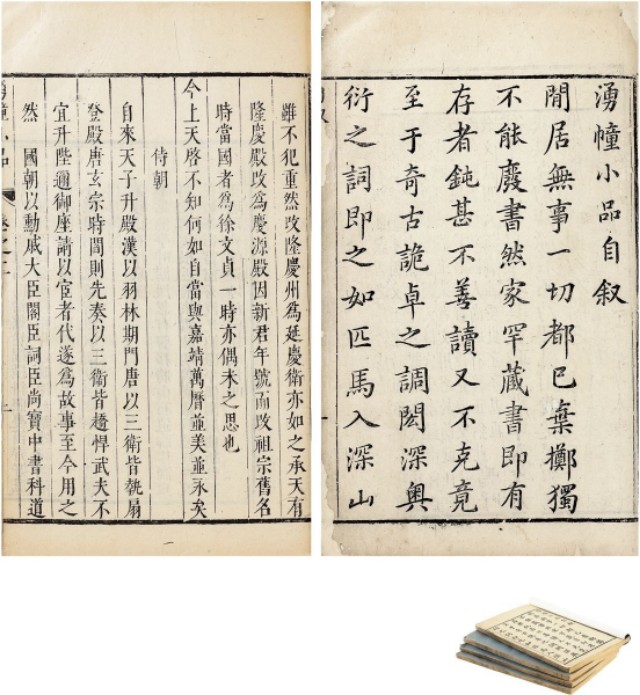 湧幢小品自叙
閒居無事一切都已棄擲獨
不能廢書然家罕藏書即有
存者鈍甚不善讀又不克竟
至于奇古詭卓之調閎深奥
衍之詞即之如匹馬入深山
雖不犯重然改隆慶州爲延慶衛亦如之承天有
隆慶殿改爲慶源殿因新君年號而改祖宗舊名
時當國者爲徐文貞一時亦偶未之思也
今上天啓不知何如自當與嘉靖萬曆並美並永矣
侍朝
自來天子升殿漢以羽林期門唐以三衛皆執扇
登殿唐玄宗時間則先奏以三衛皆趫悍武夫不
宜升陛邇御座請以宦者代遂爲故事至今用之
然 國朝以勳戚大臣閣臣詞臣尚寶中書科道